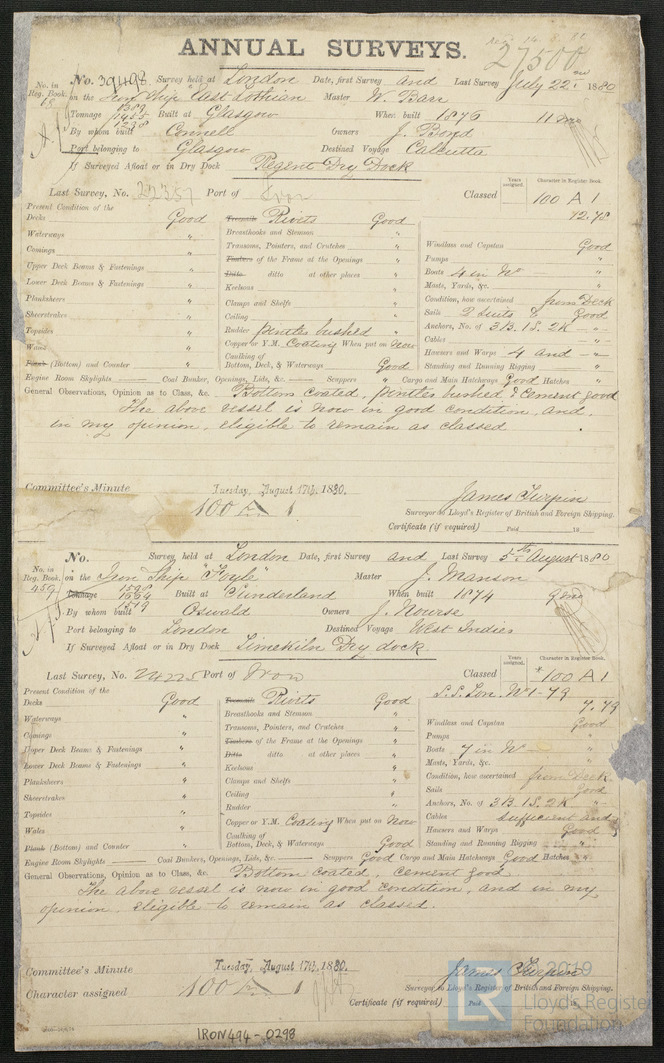 ANNUAL SURVEYS.
27500
No. in Reg. Book. No. 39498 Survey held at London Date, first Survey and Last Survey July 22nd 1880
on the Iron Ship "East Lothian" Master W. Barr
Tonnage 1389 1455 1238 Built at Glasgow When built 1876 11 mo
By whom built Connell Owners J. Bond
Port belonging to Glasgow Destined Voyage Calcutta
If Surveyed Afloat or in Dry Dock Regent Dry Dock
Years assigned. Character in Register Book.
Last Survey, No. 22357 Port of Iron Classed 100 A 1
12.78
Present Condition of the
Decks Good Treenails Rivits Good
Waterways " Breasthooks and Stemson " Windlass and Capstan Good
Comings " Transoms, Pointers, and Crutches " Pumps "
Upper Deck Beams & Fastenings " Timbers of the Frame at the Openings " Boats 4 in No "
Lower Deck Beams & Fastenings " Ditto ditto at other places " Masts, Yards, &c. "
Planksheers " Keelsons " Condition, how ascertained from Deck
Sheerstrakes " Clamps and Shelfs " Sails 2 suits & Good
Topsides " Ceiling " Anchors, No. of 3B. 1S. 2K "
Wales " Rudder pintles bushed Cables "
Plank (Bottom) and Counter " Copper or Y.M. Coating When put on Now Hawsers and Warps 4 and "
Caulking of Bottom, Deck, & Waterways Good Standing and Running Rigging "
Engine Room Skylights Coal Bunker, Openings, Lids, &c. Scuppers " Cargo and Main Hatchways Good Hatches "
General Observations, Opinion as to Class, &c. Bottom coated, pintles bushed, & cement good
The above vessel is now in good condition, and,
in my opinion, eligible to remain as classed
Committee's Minute Tuesday, August 17th, 1880.
100 A 1
James Turpin
Surveyor to Lloyd's Register of British and Foreign Shipping.
Certificate (if required) Paid 18
No. in Reg. Book. 459 No. Survey held at London Date, first Survey and Last Survey 5th August 1880
on the Iron Ship "Foyle" Master J. Manson
Tonnage Built at Sunderland When built 1874 9 mo
By whom built Oswald Owners J. Nourse
Port belonging to London Destined Voyage West Indies
If Surveyed Afloat or in Dry Dock Limekiln Dry dock.
Years assigned. Character in Register Book.
Last Survey, No. 24225 Port of Iron Classed 100 A 1
S.S. Lon. No 1-79
7.79
Present Condition of the
Decks Good Treenails Rivits Good
Waterways " Breasthooks and Stemson " Windlass and Capstan Good
Comings " Transoms, Pointers, and Crutches " Pumps "
Upper Deck Beams & Fastenings " Timbers of the Frame at the Openings " Boats 7 in No "
Lower Deck Beams & Fastenings " Ditto ditto at other places " Masts, Yards, &c. "
Planksheers " Keelsons " Condition, how ascertained from Deck
Sheerstrakes " Clamps and Shelfs " Sails Good
Topsides " Ceiling " Anchors, No. of 3B. 1S. 2K "
Wales " Rudder " Cables sufficient and
Plank (Bottom) and Counter " Copper or Y.M. Coating When put on Now Hawsers and Warps Good
Caulking of Bottom, Deck, & Waterways Good Standing and Running Rigging "
Engine Room Skylights Coal Bunkers, Openings, Lids, &c. Scuppers Good Cargo and Main Hatchways Good Hatches "
General Observations, Opinion as to Class, &c. Bottom coated, cement good
The above vessel is now in good condition, and in my
opinion, eligible to remain as classed.
Committee's Minute Tuesday, August 17th, 1880.
Character assigned 100 A 1
James Turpin
Surveyor to Lloyd's Register of British and Foreign Shipping.
Certificate (if required) Paid 18
IRON494-0298
© 2019
LR
Lloyd's Register
Foundation